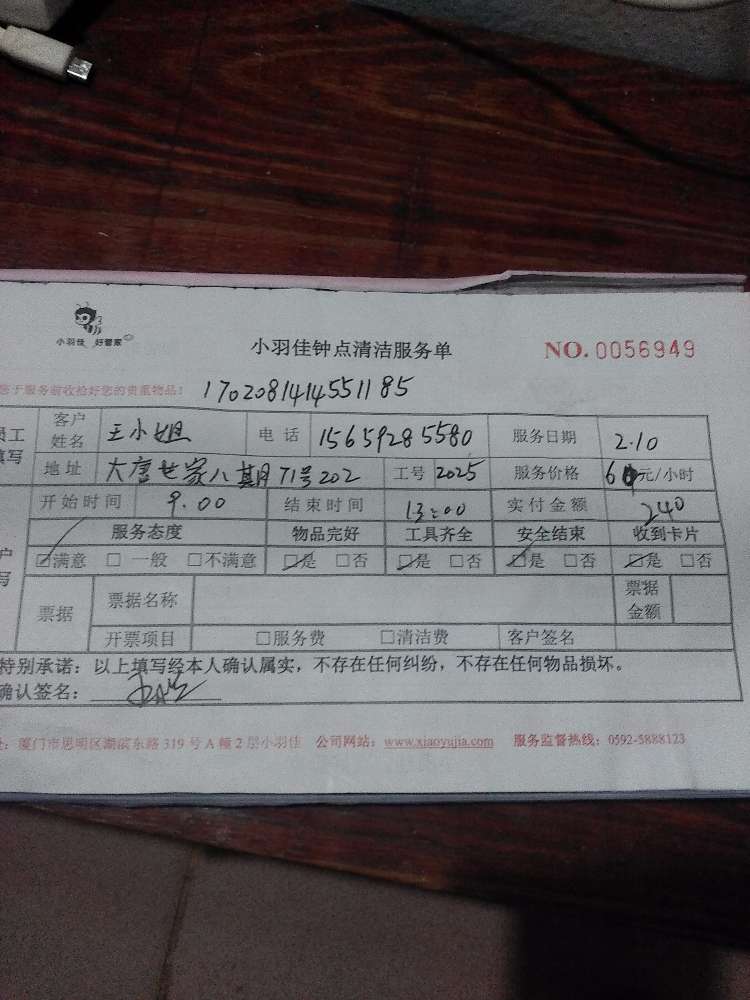 小羽佳 好管家
小羽佳钟点清洁服务单 NO. 0056949
您于服务前收捡好您的贵重物品: 17020814145511 85
员工填写
客户姓名 王小姐 电话 15659285580 服务日期 2.10
地址 大唐世家八期71号202 工号 2025 服务价格 60元/小时
开始时间 9.00 结束时间 13:00 实付金额 240
服务态度 物品完好 工具齐全 安全结束 收到卡片
☑满意 □一般 □不满意 ☑是 □否 ☑是 □否 ☑是 □否 ☑是 □否
票据 票据名称 票据金额
开票项目 □服务费 □清洁费 客户签名
特别承诺:以上填写经本人确认属实,不存在任何纠纷,不存在任何物品损坏。
确认签名:
厦门市思明区湖滨东路 319 号 A 幢 2 层小羽佳 公司网站:www.xiaoyujia.com 服务监督热线:0592-5888123